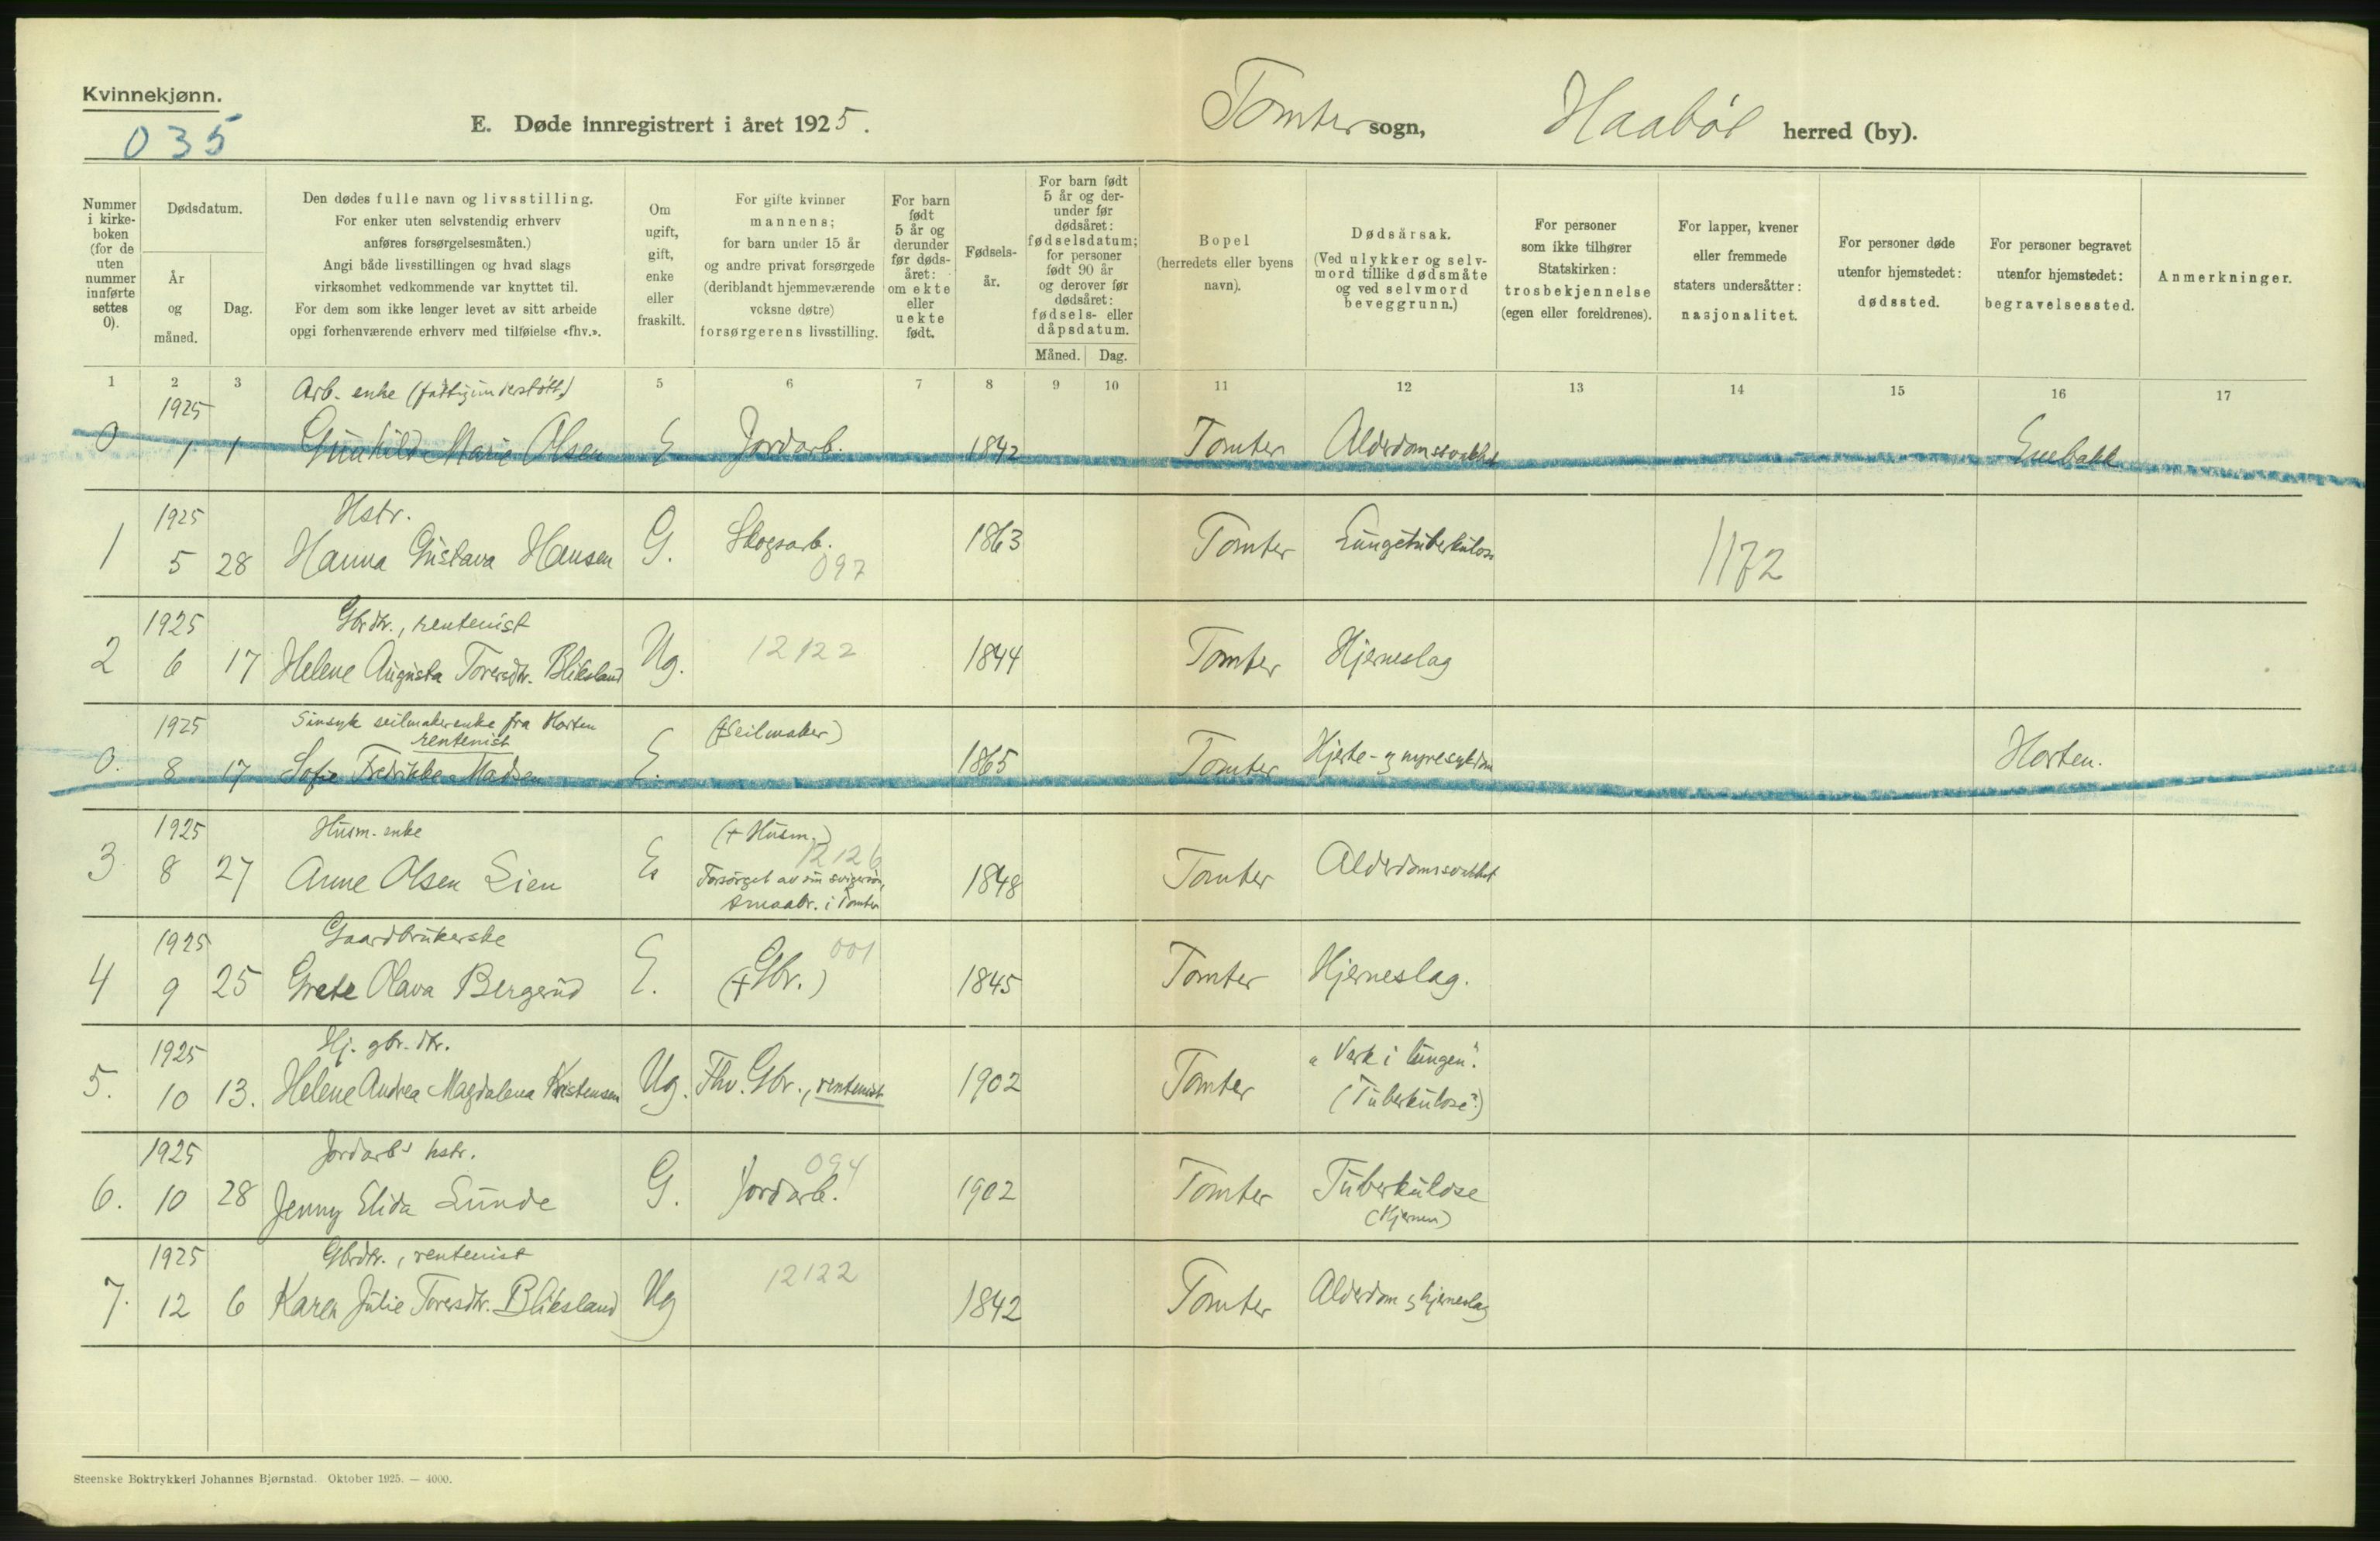 Kvinnekjønn.
035
E. Døde innregistrert i året 1925.
Tomter sogn, Haabøl herred (by).
Nummer i kirkeboken (for de uten nummer innførte settes 0).
Dødsdatum.
År og måned.
Dag.
Den dødes fulle navn og livsstilling.
For enker uten selvstendig erhverv
anføres forsørgelsesmåten.)
Angi både livsstillingen og hvad slags
virksomhet vedkommende var knyttet til.
For dem som ikke lenger levet av sitt arbeide
opgi forhenværende erhverv med tilføielse «fhv.».
Om ugift, gift, enke eller fraskilt.
For gifte kvinner
mannens;
for barn under 15 år
og andre privat forsørgede
(deriblandt hjemmeværende
voksne døtre)
forsørgerens livsstilling.
For barn født 5 år og derunder før dødsåret: om ekte eller uekte født.
Fødselsår.
For barn født 5 år og derunder før dødsåret: fødselsdatum; for personer født 90 år og derover før dødsåret: fødsels- eller dåpsdatum.
Måned. Dag.
Bopel
(herredets eller byens
navn).
Dødsårsak.
(Ved ulykker og selvmord tillike dødsmåte og ved selvmord beveggrunn.)
For personer
som ikke tilhører
Statskirken:
trosbekjennelse
(egen eller foreldrenes).
For lapper, kvener
eller fremmede
staters undersåtter:
nasjonalitet.
For personer døde
utenfor hjemstedet:
dødssted.
For personer begravet
utenfor hjemstedet:
begravelsessted.
Anmerkninger.
1 2 3 5 6 7 8 9 10 11 12 13 14 15 16 17
1925 Arb. enke (fattigunderstøtt.)
0 1 1 Gunhild Marie Olsen E Jordarb. 1842 Tomter Alderdomssvakhet Enebakk
1925 Hstr.
1 5 28 Hanna Gustava Hansen G. Skogsarb. 097 1863 Tomter Lungetuberkulose 1172
1925 Gbrdtr., rentenist
2 6 17 Helene Augusta Toversdtr. Bliksland Ug. 12122 1844 Tomter Hjerneslag
1925 Sinsyk seilmakerenke fra Horten
rentenist
0. 8 17 Sofie Fredrikke Madsen E. (+Seilmaker) 1865 Tomter Hjerte- og nyresykdom Horten.
1925 Husm. enke (+ Husm.)
12126
3 8 27 Anne Olsen Lien E. Forsørget av sin svigersøn, 1848 Tomter Alderdomssvakhet
smaabr. i Tomter
1925 Gaardbrukerske 001
4 9 25 Grete Olava Bergerud E. (+Gbr.) 1845 Tomter Hjerneslag.
1925 Hj. gbr. dtr.
5. 10 13. Helene Andrea Magdalena Kristensen Ug. Fhv. Gbr., rentenist 1902 Tomter "Verk i lungen".
(Tuberkulose?)
1925 Jordarb's hstr. 094
6. 10 28 Jenny Elida Lunde G. Jordarb. 1902 Tomter Tuberkulose
(Hjernen)
1925 Gbrdtr., rentenist 12122
7. 12 6 Karen Julie Toversdtr. Bliksland Ug 1842 Tomter Alderdom og hjerneslag
Steenske Boktrykkeri Johannes Bjørnstad. Oktober 1925. — 4000.